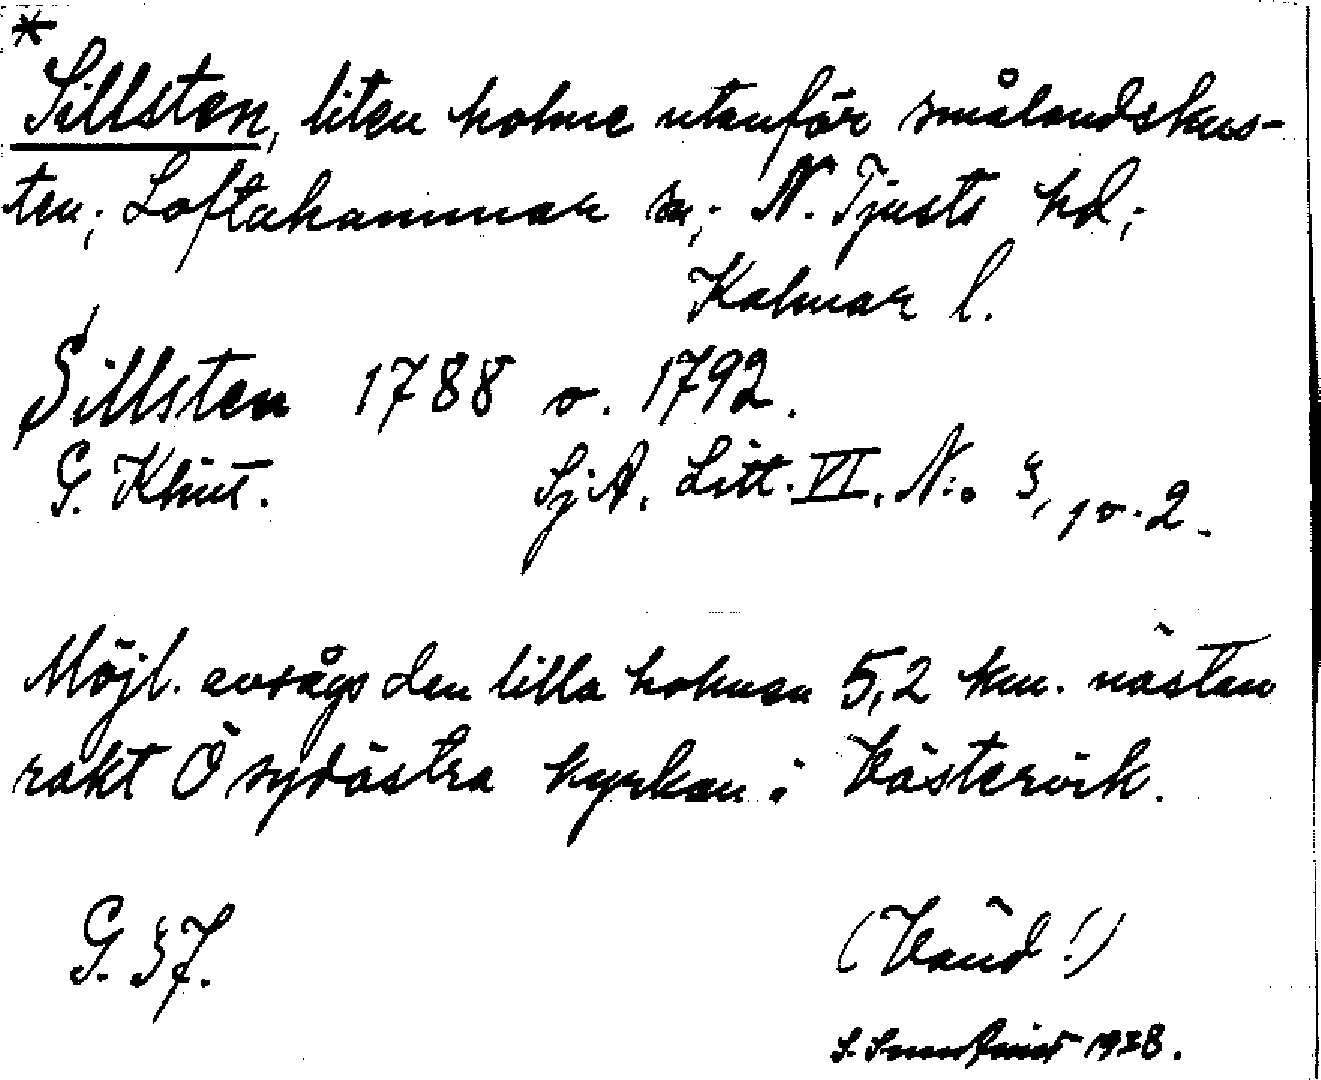 *
Sillsten, liten holme utanför smålandskus-
ten; Loftahammar sn; N. Tjusts hd;
Kalmar l.
Sillsten 1788 o. 1792.
G. Klint. SjA. Litt. VI. N:o 3, p. 2.
Möjl. avsågs den lilla holmen 5,2 km. nästan
rakt Ö sydöstra kyrkan i Västervik.
G. 37. (Vänd!)
1938.